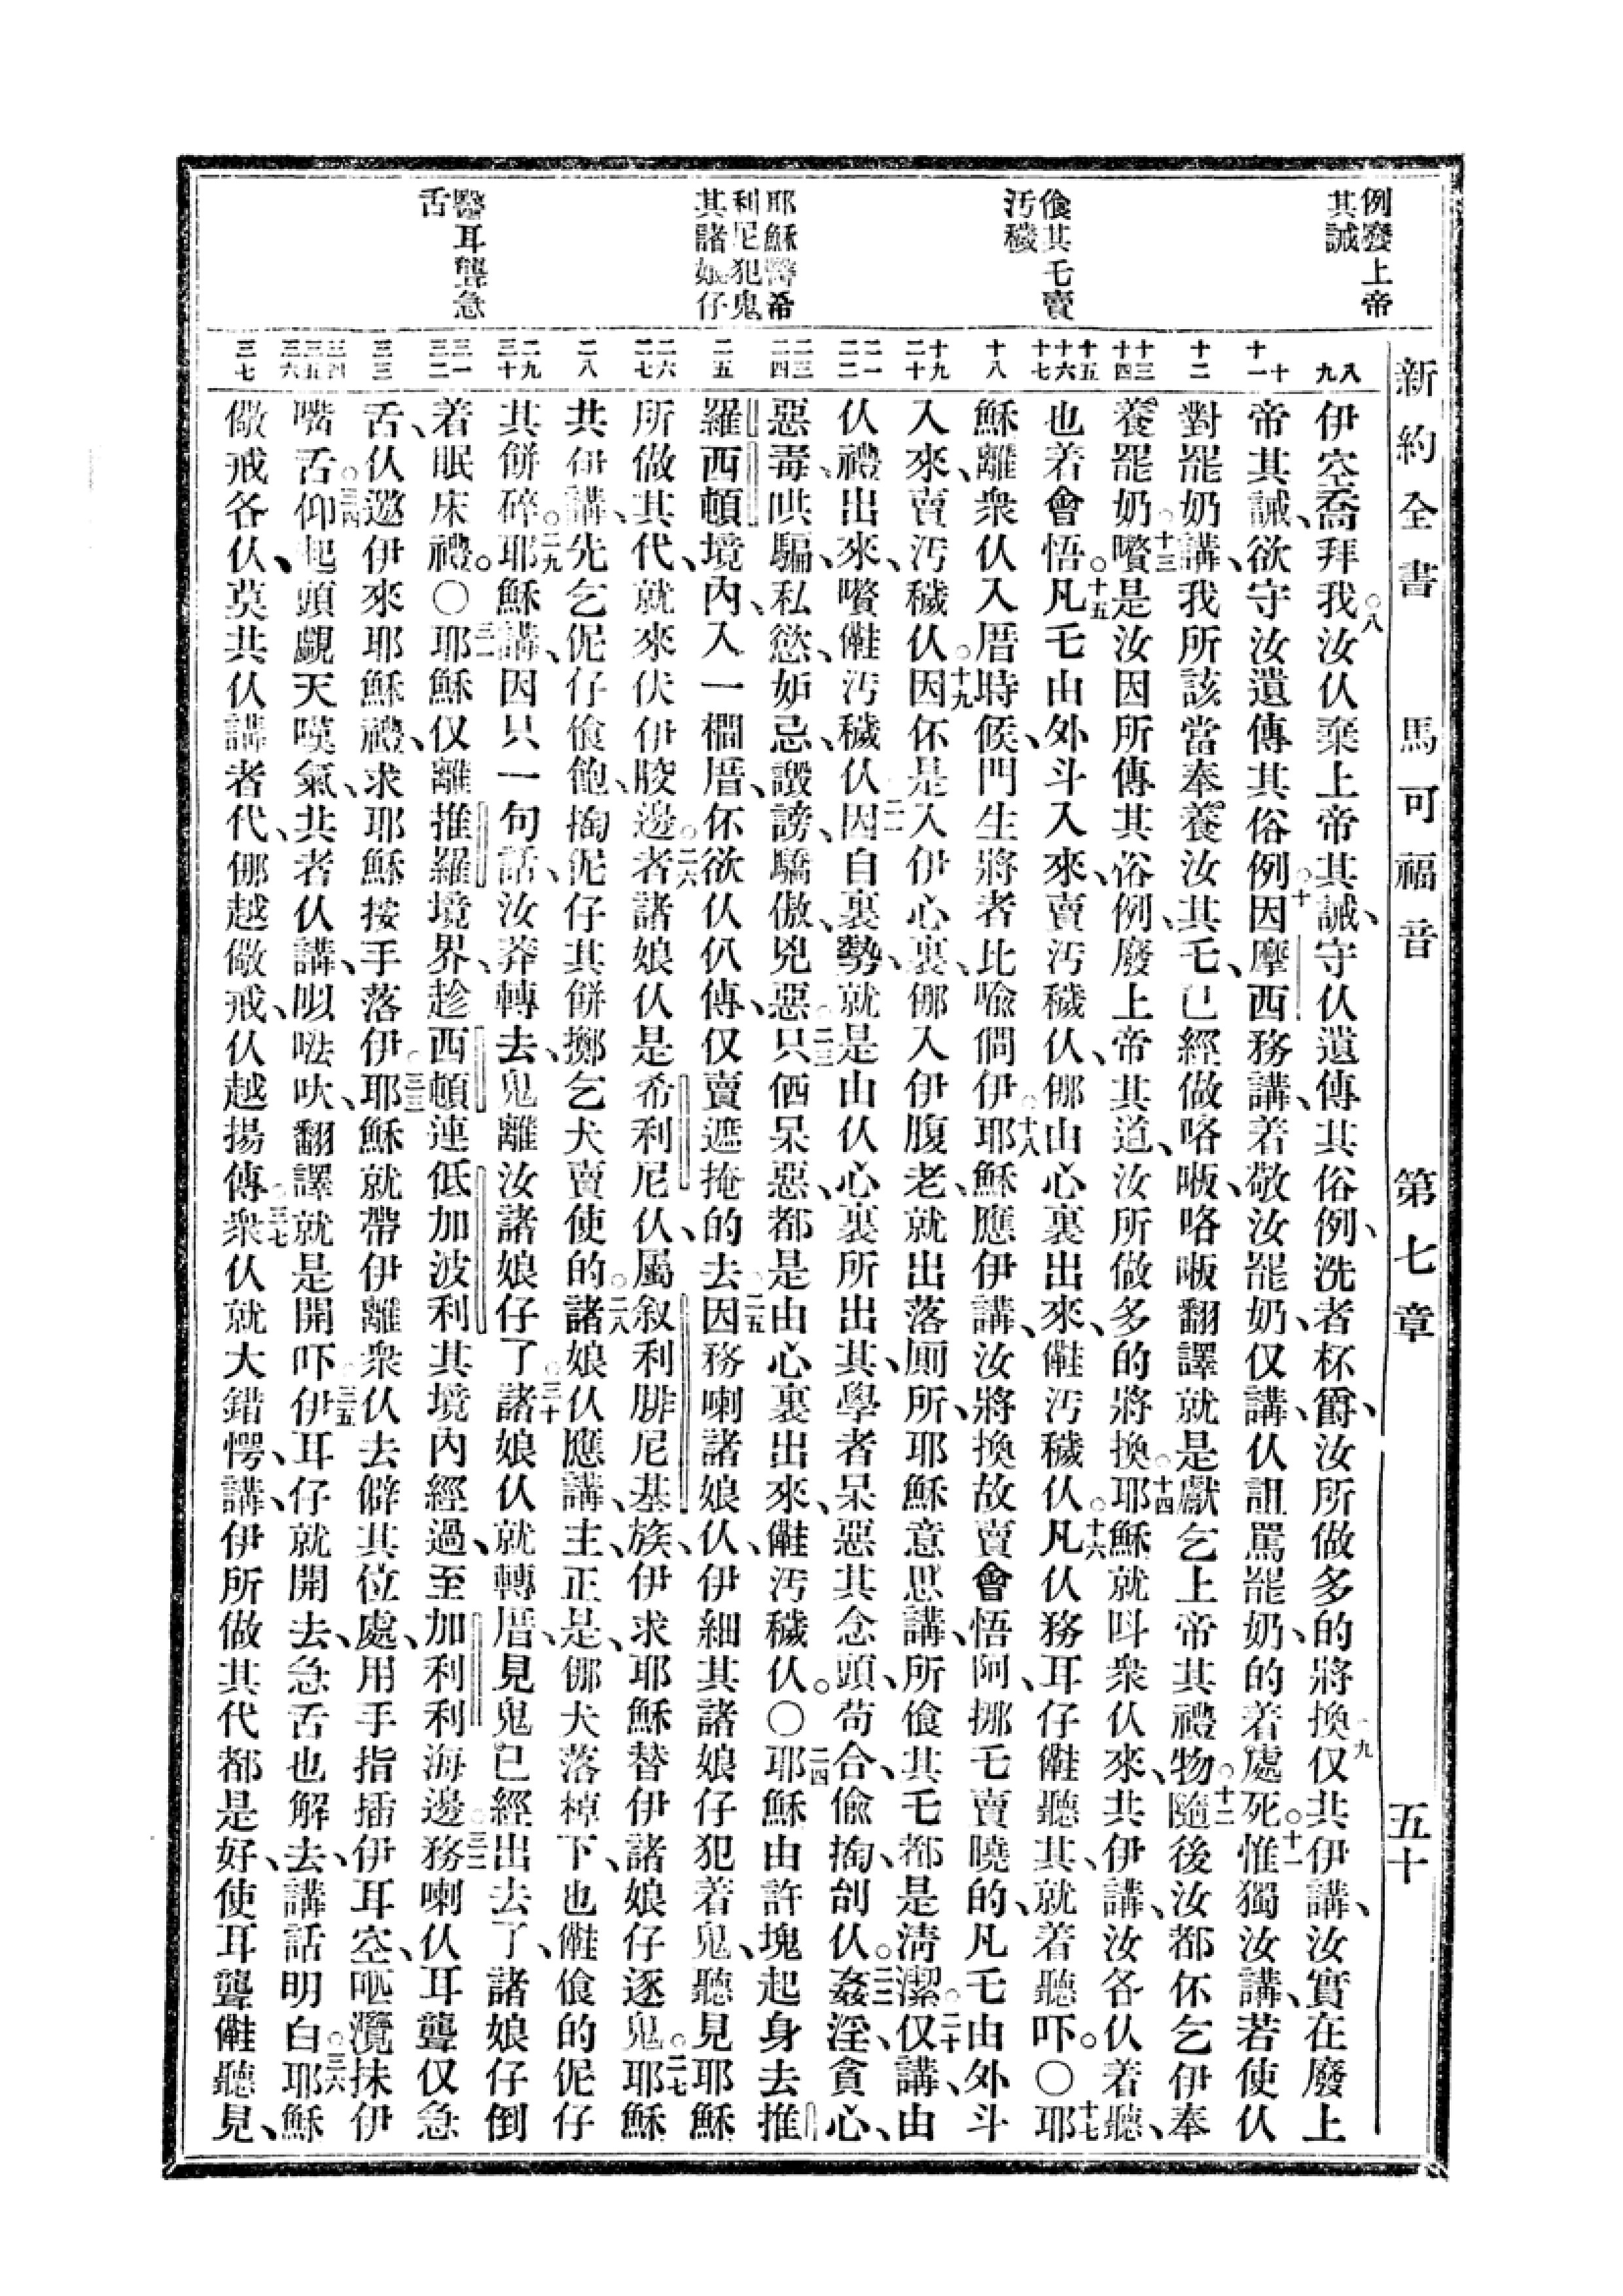 新約全書 馬可福音 第七章 五十
例廢上帝
其誡
食其乇賣
汚穢
耶穌醫希
利尼犯鬼
其諸娘仔
醫耳聾急
舌
八
九
十
十一
十二
十三
十四
十五
十六
十七
十八
十九
二十
二一
二二
二三
二四
二五
二六
二七
二八
二九
三十
三一
三二
三三
三四
三五
三六
三七
伊空喬拜我○八汝仈棄上帝其誡、守仈遺傳其俗例、洗者杯爵、汝所做多的將換○九仅共伊講、汝實在廢上
帝其誡、欲守汝遺傳其俗例○十因摩西務講、着敬汝罷奶、仅講、仈詛罵罷奶、的着處死○十一惟獨汝講、若使仈
對罷奶講、我所該當奉養汝其乇、已經做咯㖠、咯㖠翻譯就是獻乞上帝其禮物○十二隨後汝都伓乞伊奉
養罷奶○十三嚽是汝因所傳其俗例、廢上帝其道、汝所做多的將換○十四耶穌就呌衆仈來、共伊講、汝各仈着聽、
也着會悟○十五凡乇由外斗入來、賣汚穢仈、㑚由心裏出來、㒤汚穢仈○十六凡仈務耳仔㒤聽其、就着聽吓。○十七耶
穌離衆仈入厝時候、門生將者比喻僩伊○十八耶穌應伊講、汝將換故賣會悟阿、挪乇賣曉的、凡乇由外斗
入來、賣汚穢仈○十九因伓是入伊心裏、㑚入伊腹老、就出落廁所、耶穌意思講、所食其乇都是淸潔○二十仅講、由
仈禮出來、嚽㒤汚穢仈○二一因自裏勢、就是由仈心裏所出、其學者呆惡其念頭、苟合、偸掏、刣仈○二二姦淫、貪心、
惡毒、哄騙、私慾、妒忌、譭謗、驕傲、兇惡○二三只倃呆惡、都是由心裏出來、㒤汚穢仈。○二四耶穌由許塊起身、去推
羅西頓境內、入一櫚厝、伓欲仈仈傳、仅賣遮掩的去○二五因務喇諸娘仈、伊細其諸娘仔犯着鬼、聽見耶穌
所做其代、就來伏伊骹邊○二六者諸娘仈是希利尼仈、屬叙利腓尼基族、伊求耶穌替伊諸娘仔逐鬼○二七耶穌
共伊講、先乞伲仔食飽、掏伲仔其餅擲乞犬賣使的○二八諸娘仈應講、主、正是、㑚犬落棹下、也㒤食的伲仔
其餅碎○二九耶穌講、因只一句話、汝莽轉去、鬼離汝諸娘仔了○三十諸娘仈就轉厝、見鬼已經出去了、諸娘仔倒
着眠床禮。○三一耶穌仅離推羅境界、趁西頓連低加波利其境內經過、至加利利海邊○三二務喇仈耳聾仅急
舌、仈邀伊來耶穌禮、求耶穌按手落伊○三三耶穌就帶伊離衆仈、去僻其位處、用手指插伊耳空、嘔瀾抹伊
嘴舌○三四仰起頭覷天嘆氣、共者仈講、㕥㗱吙、翻譯就是開吓○三五伊耳仔就開去、急舌也解去、講話明白○三六耶穌
儆戒各仈、莫共仈講者代、㑚越儆戒、仈越揚傳○三七衆仈就大錯愕、講、伊所做其代都是好、使耳聾㒤聽見、